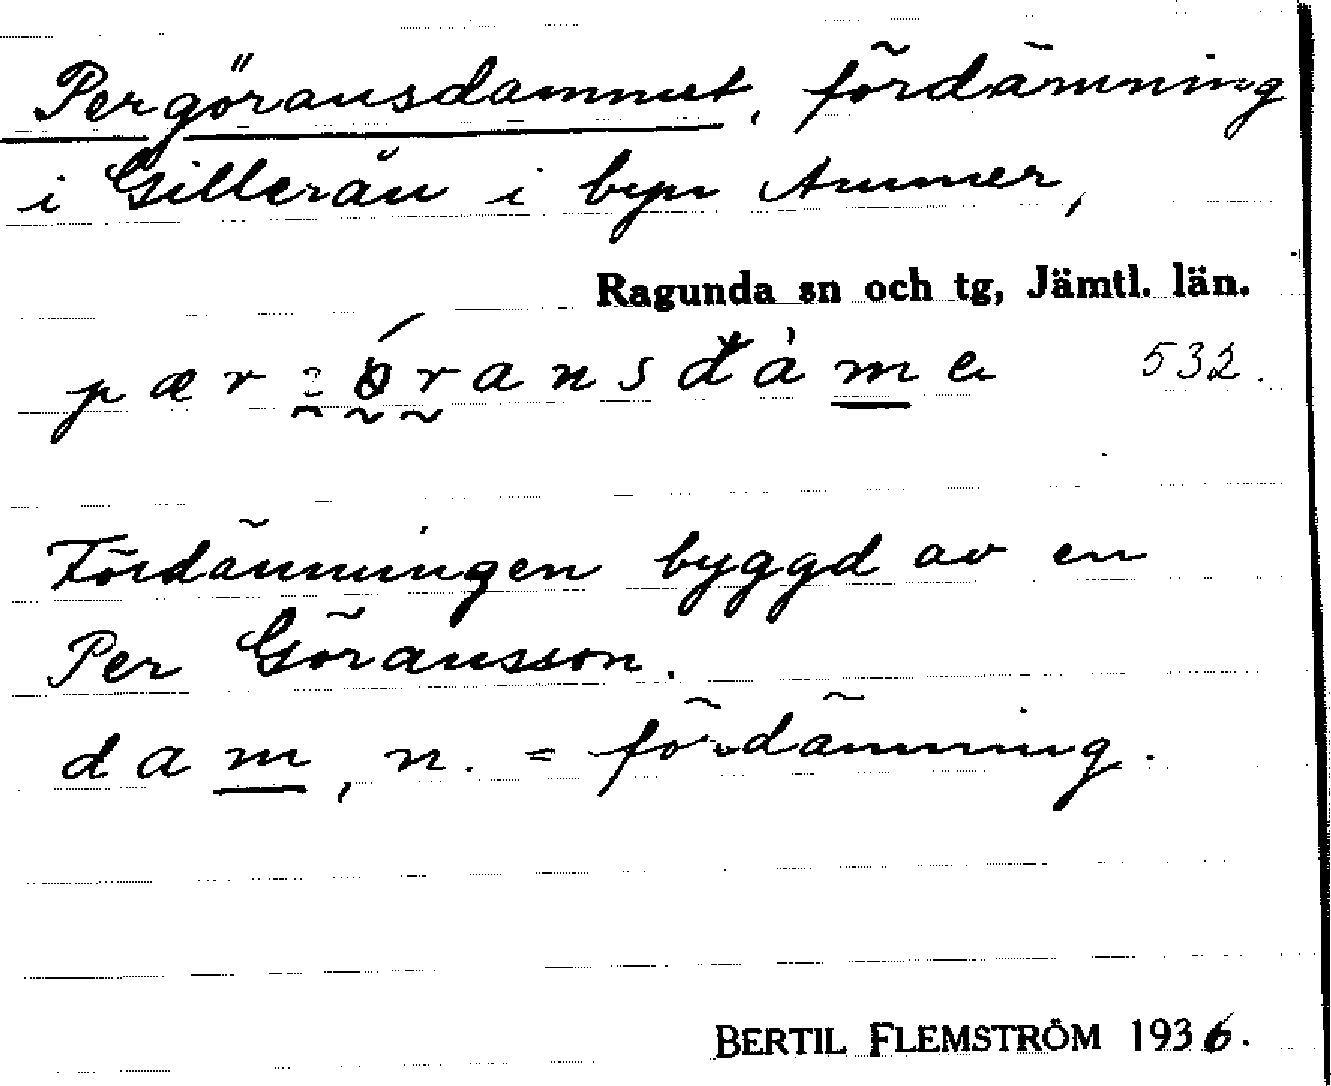 Pergöransdammet, fördämning
i Gillerån i byn Ammer,
Ragunda sn och tg, Jämtl. län.
532.
Fördämningen byggd av en
Per Göransson.
dam, n. = fördämning.
BERTIL FLEMSTRÖM 1936.